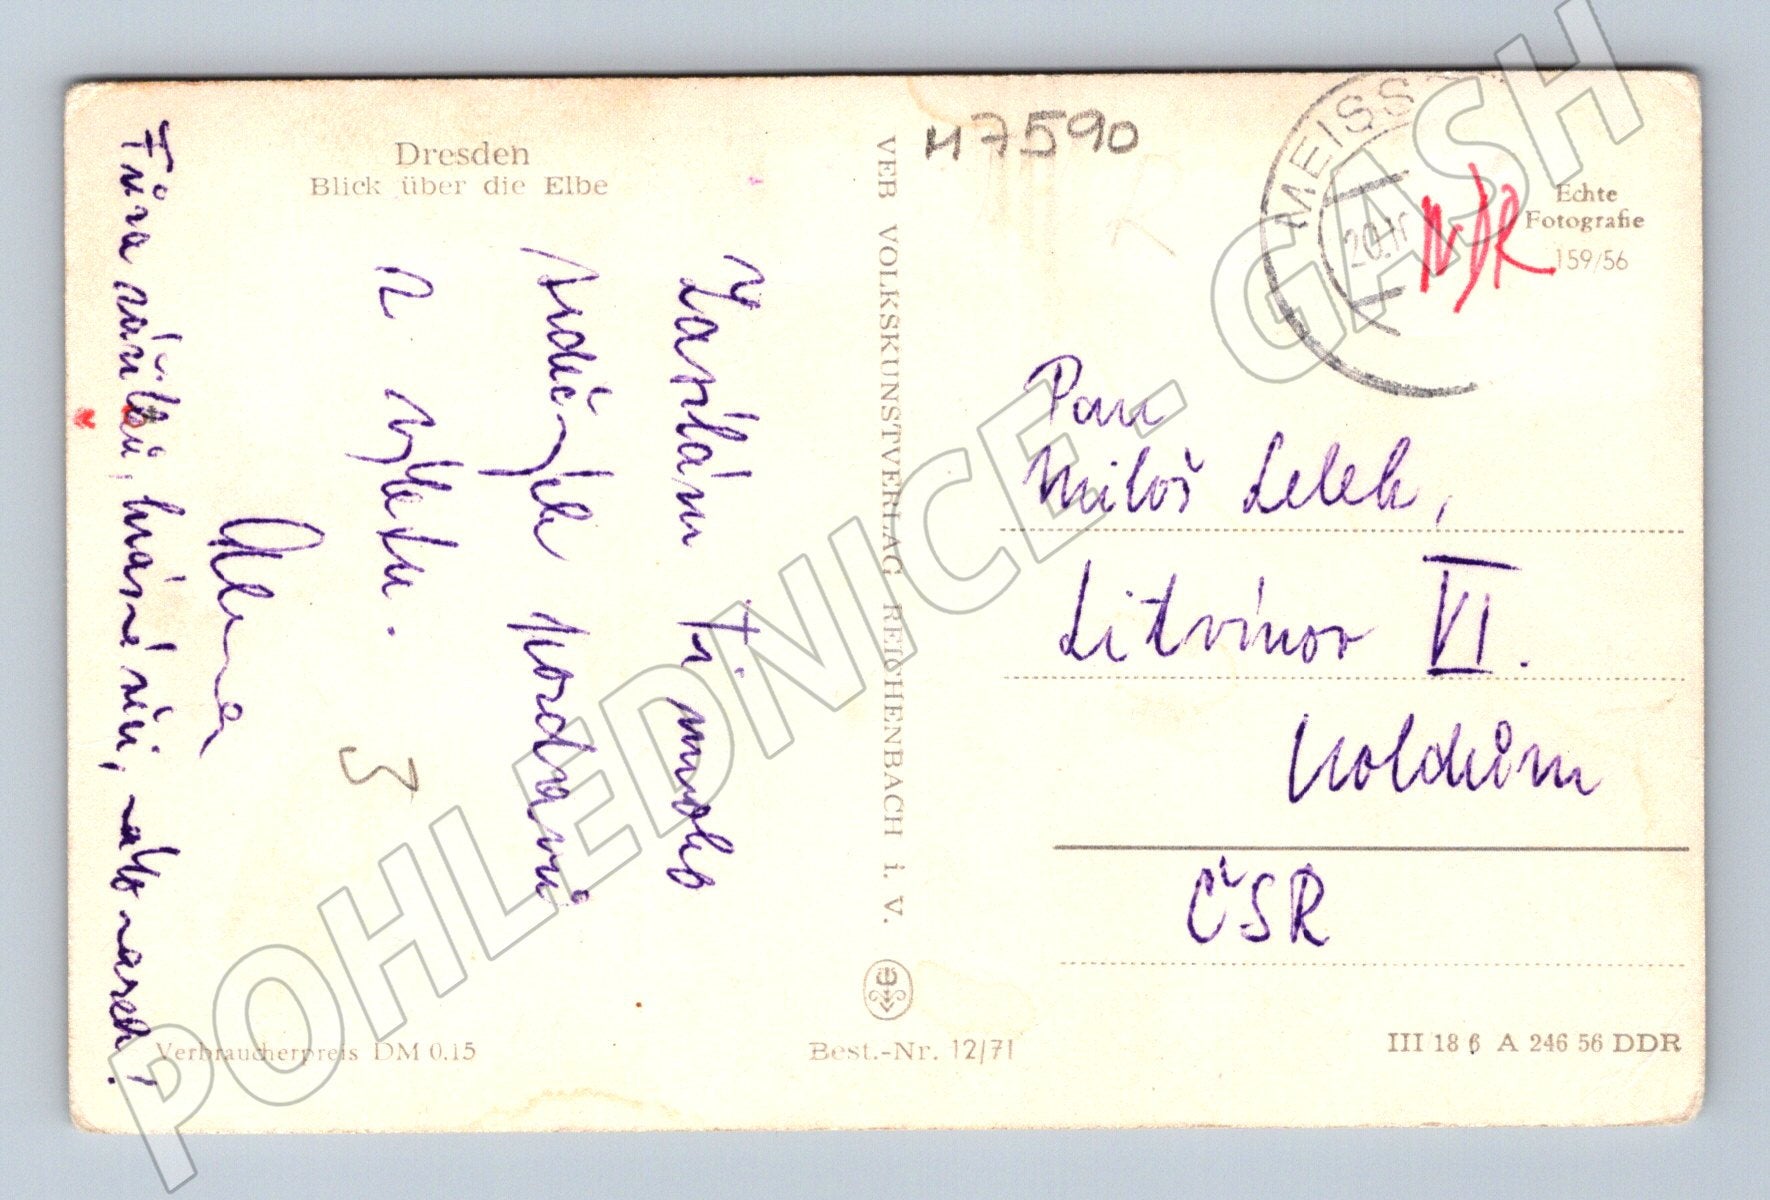 Dresden
Blick über die Elbe
Zasílám Ti mnoho
srdečných pozdravů
z výletu.
Alena
Fůra zážitků, krásné věci, nebo naseh!
J
VEB VOLKSKUNSTVERLAG REICHENBACH i. V.
H7590
MEISS
20.11
NDR
Echte
Fotografie
159/56
Pan
Miloš Lelek,
Litvínov VI.
Koldům
ČSR
Verbraucherpreis DM 0.15
Best.-Nr. 12/71
III 18 6 A 246 56 DDR
POHLEDNICE - GASH